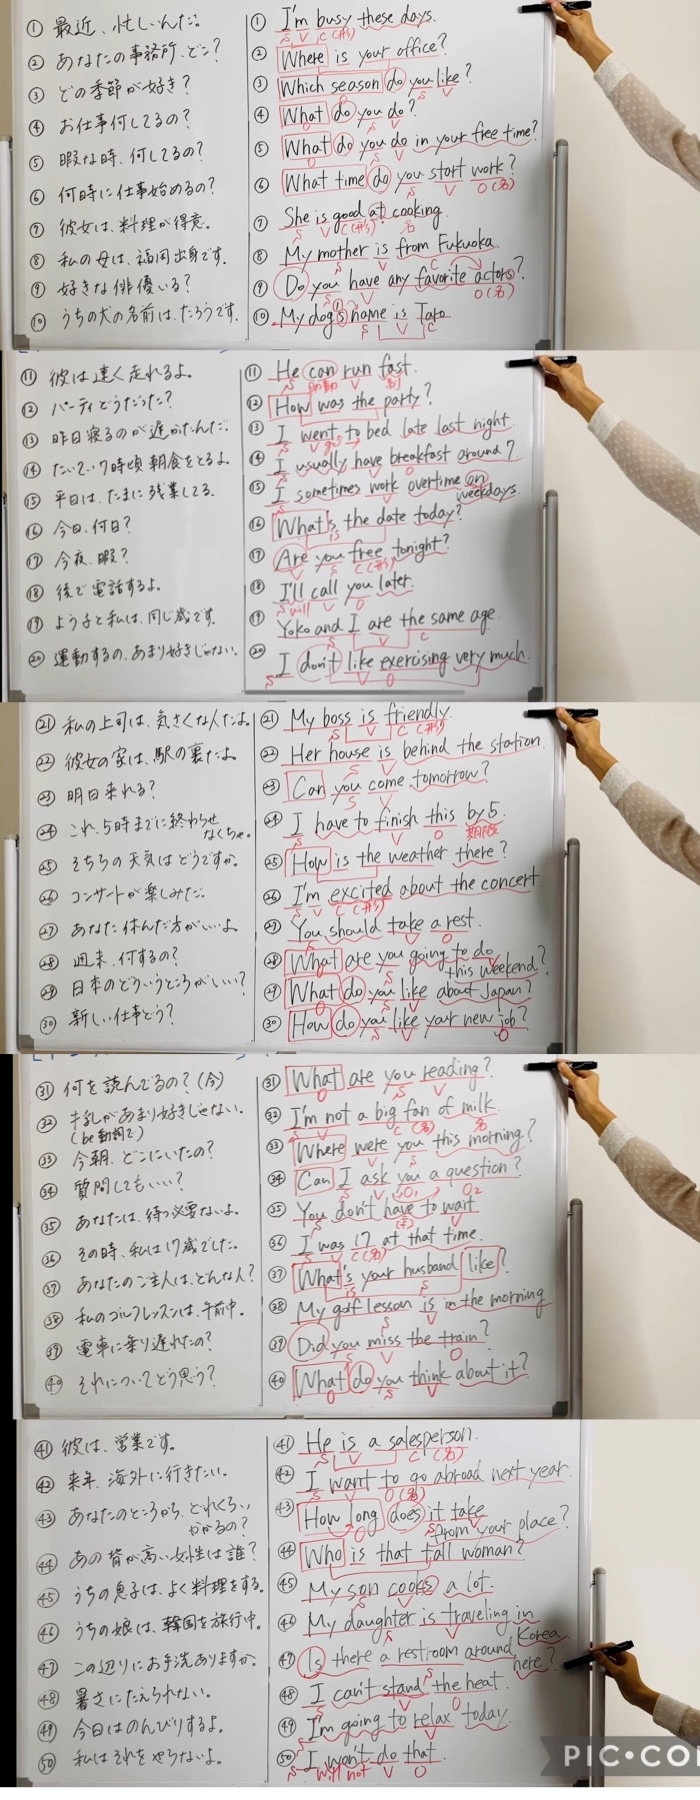 ① 最近、忙しいんだ。
② あなたの事務所、どこ?
③ どの季節が好き?
④ お仕事何してるの?
⑤ 暇な時、何してるの?
⑥ 何時に仕事始めるの?
⑦ 彼女は、料理が得意。
⑧ 私の母は、福岡出身です。
⑨ 好きな俳優いる?
⑩ うちの犬の名前は、たろうです。
① I'm busy these days.
② Where is your office?
③ Which season do you like?
④ What do you do?
⑤ What do you do in your free time?
⑥ What time do you start work?
⑦ She is good at cooking.
⑧ My mother is from Fukuoka
⑨ Do you have any favorite actors?
⑩ My dog's name is Taro
⑪ 彼は速く走れるよ。
⑫ パーティどうだった?
⑬ 昨日寝るのが遅かったんだ。
⑭ だいたい7時頃朝食をとるよ。
⑮ 平日は、たまに残業してる。
⑯ 今日、何日?
⑰ 今夜、暇?
⑱ 後で電話するよ。
⑲ よう子と私は、同じ歳です。
⑳ 運動するの、あまり好きじゃない。
⑪ He can run fast.
⑫ How was the party?
⑬ I went to bed late last night.
⑭ I usually have breakfast around 7
⑮ I sometimes work overtime on
weekdays.
⑯ What's the date today?
⑰ Are you free tonight?
⑱ I'll call you later.
⑲ Yoko and I are the same age.
⑳ I don't like exercising very much.
㉑ 私の上司は、気さくな人だよ。
㉒ 彼女の家は、駅の裏だよ。
㉓ 明日来れる?
㉔ これ、5時までに終わらせ
なくちゃ。
㉕ そちらの天気はどうですか。
㉖ コンサートが楽しみだ。
㉗ あなた休んだ方がいいよ。
㉘ 週末、何するの?
㉙ 日本のどういうところがいい?
㉚ 新しい仕事どう?
㉑ My boss is friendly.
㉒ Her house is behind the station.
㉓ Can you come tomorrow?
㉔ I have to finish this by 5.
㉕ How is the weather there?
㉖ I'm excited about the concert.
㉗ You should take a rest.
㉘ What are you going to do
this weekend?
㉙ What do you like about Japan?
㉚ How do you like your new job?
㉛ 何を読んでるの?(今)
㉜ 牛乳があまり好きじゃない。
(be動詞で)
㉝ 今朝、どこにいたの?
㉞ 質問してもいい?
㉟ あなたは、待つ必要ないよ。
㊱ その時、私は17歳でした。
㊲ あなたのご主人は、どんな人?
㊳ 私のゴルフレッスンは、午前中。
㊴ 電車に乗り遅れたの?
㊵ それについてどう思う?
㉛ What are you reading?
㉜ I'm not a big fan of milk.
㉝ Where were you this morning?
㉞ Can I ask you a question?
㉟ You don't have to wait
㊱ I was 17 at that time.
㊲ What's your husband like?
㊳ My golf lesson is in the morning
㊴ Did you miss the train?
㊵ What do you think about it?
㊶ 彼は、営業です。
㊷ 来年、海外に行きたい。
㊸ あなたのところから、どれくらい
かかるの?
㊹ あの背が高い女性は誰?
㊺ うちの息子は、よく料理をする。
㊻ うちの娘は、韓国を旅行中。
㊼ この辺りにお手洗ありますか。
㊽ 暑さにたえられない。
㊾ 今日はのんびりするよ。
㊿ 私はそれをやらないよ。
㊶ He is a salesperson.
㊷ I want to go abroad next year.
㊸ How long does it take
from your place?
㊹ Who is that tall woman?
㊺ My son cooks a lot.
㊻ My daughter is traveling in
Korea
㊼ Is there a restroom around
here?
㊽ I can't stand the heat.
㊾ I'm going to relax today.
㊿ I won't do that.
will not
PIC•CO